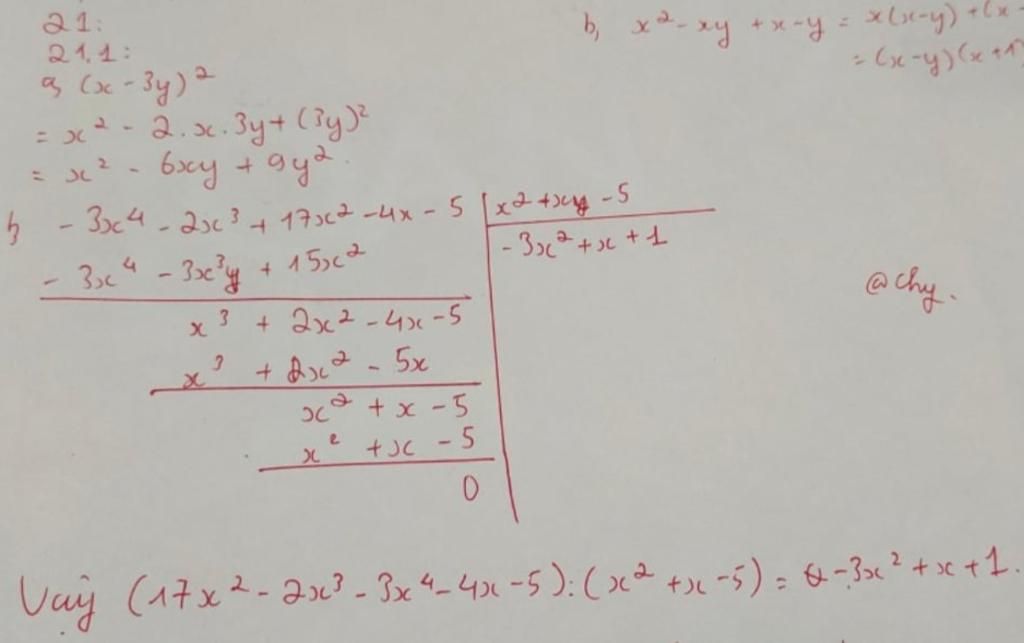 21:
21.1:
a, (x - 3y)²
= x² - 2.x.3y + (3y)²
= x² - 6xy + 9y²
b, x² - xy + x - y = x(x-y) + (x-
= (x-y)(x+1)
b, - 3x⁴ - 2x³ + 17x² - 4x - 5 | x² + x - 5
- 3x⁴ - 3x³ + 15x² | - 3x² + x + 1
x³ + 2x² - 4x - 5
x³ + 2x² - 5x
x² + x - 5
x² + x - 5
0
@chy.
Vậy (17x² - 2x³ - 3x⁴ - 4x - 5) : (x² + x - 5) = - 3x² + x + 1.